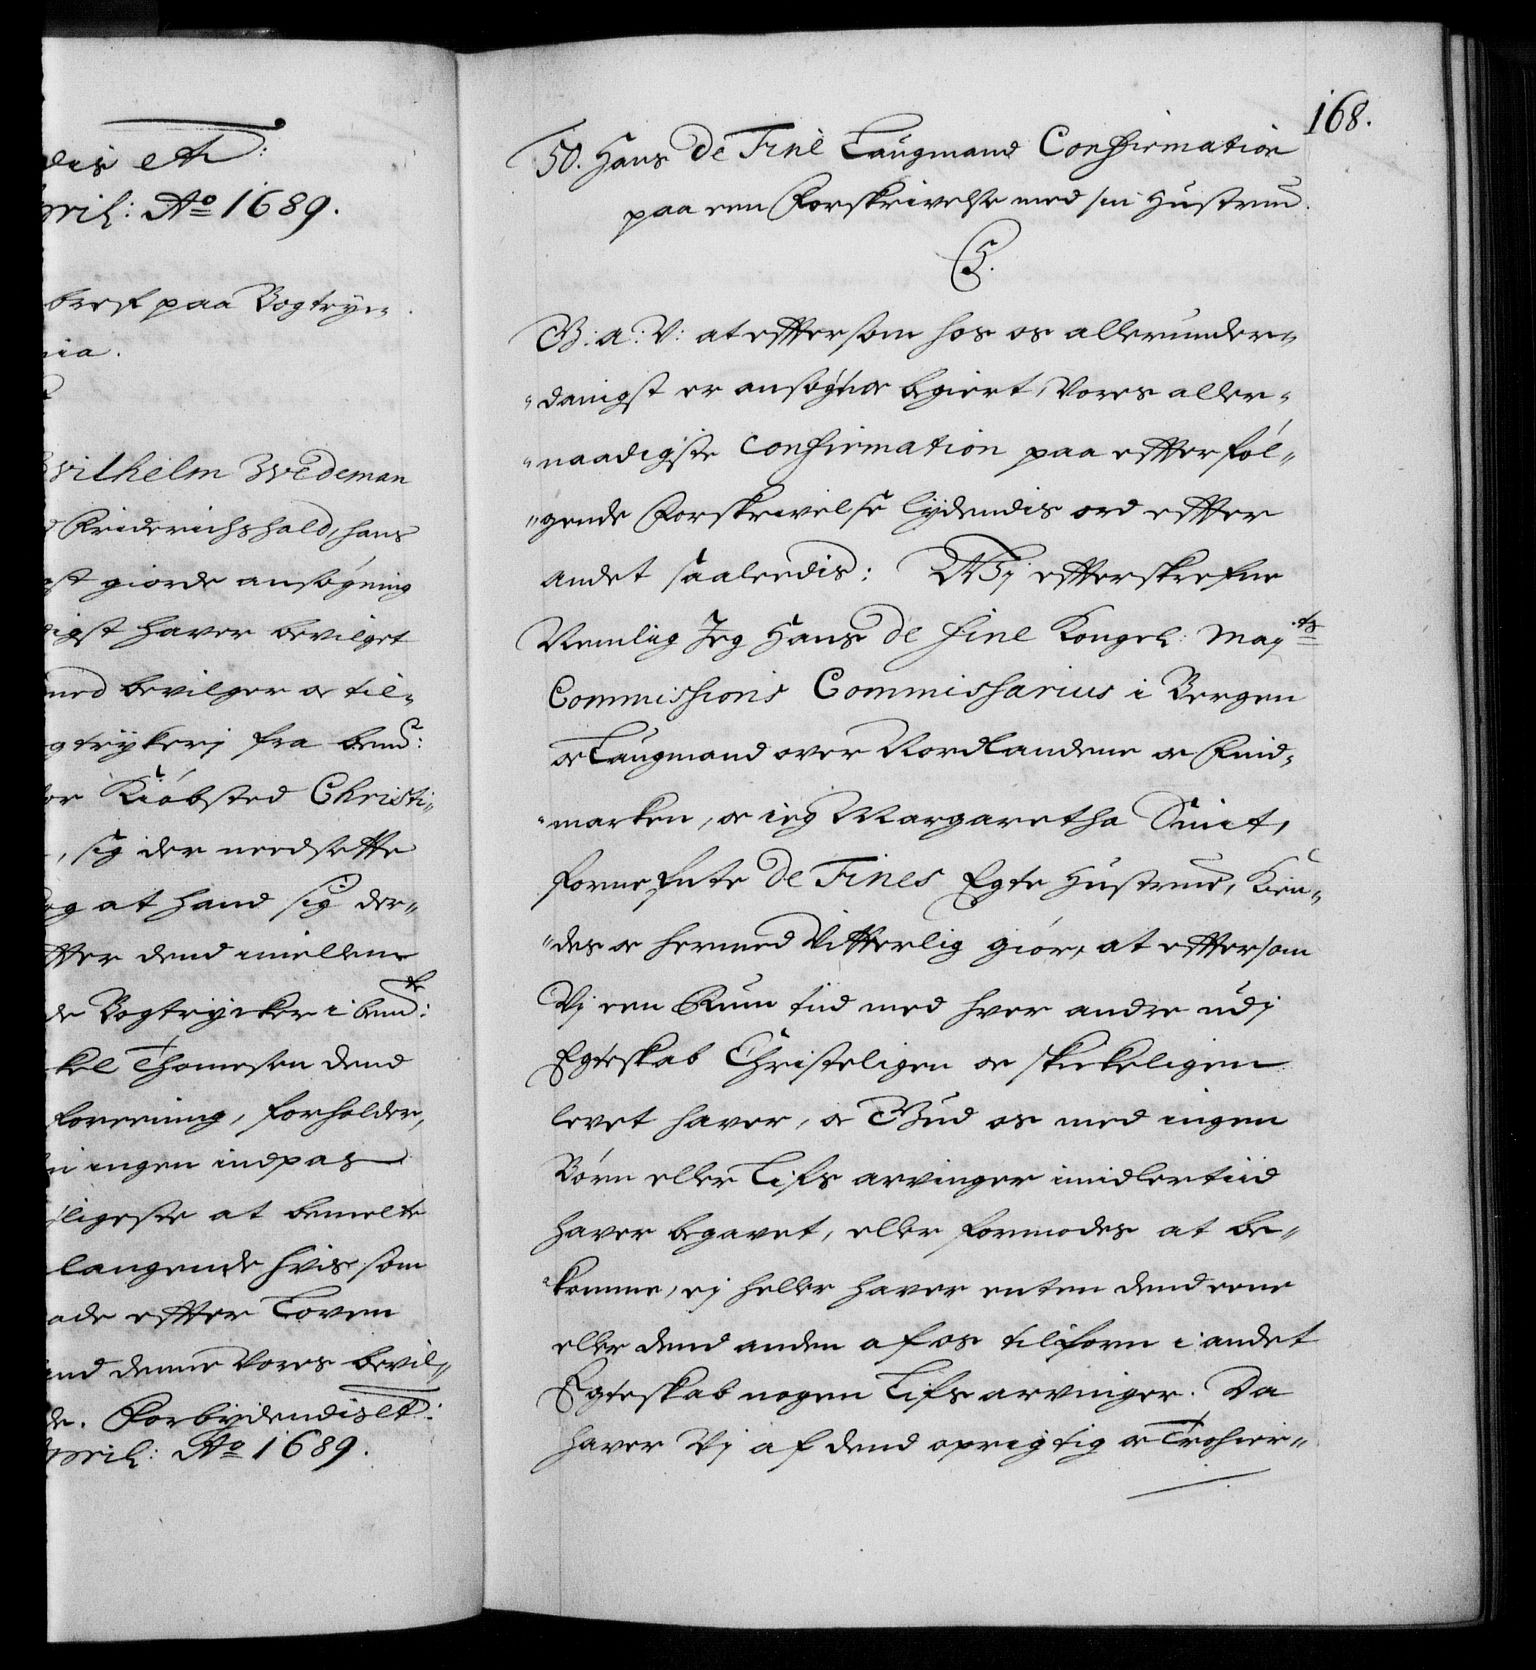 dis etc:
pril: Ao 1689.
bref paa Bogtryc-
nia.
Vilhelm Wedeman
Friderichshald, hans
gst giorde ansøgning
digst hafver bevilget
med bevilger oc til-
gtrykerj fra bemte:
vor Kiøbsted Christi-
, sig der needsette
og at hand sig der-
fter dend imellem
de Bogtrycker i bemte:
kel Thomesen dend
foreening, forholder,
ingen indpas
ligeste at bemelte
langende hvis som
ade effter Loven
end denne Vores bevil-
de. Forbydendis etc:
April: Ao 1689.
168.
50. Hans de Fine Laugmand Confirmation
paa een Forskrivelse med sin Hustrue.
C5.
G: a: V: at effter som hos os allerunder-
danigst er ansøgt oc begiert, Vores aller-
naadigste Confirmation paa effterføl-
gende Forskrivelse lydendis ord effter
andet saaleedis: Wj effterskrefne
Nemlig Jeg Hans de Fine Kongel: Mayts
Commissions Commissarius i Bergen
oc Laugmand over Nordlandene oc Find-
marken, oc ieg Margaretha Smit,
fornefnte de Fines Egte Hustrue, Kien-
des oc hermed Vitterlig giør, at effter som
Vj een Rum tiid med hver andre udj
Egteskab Christeligen oc skickeligen
levet haver, oc Gud os med ingen
Børn eller Lifs arvinger imidlertiid
haver begavet, eller formodes at be-
komme, ej heller haver enten dend eene
eller dend anden af os tilforn i andet
Egteskab nogen Lifs arvinger. Da
haver Vj af dend oprigtig oc Trohier-